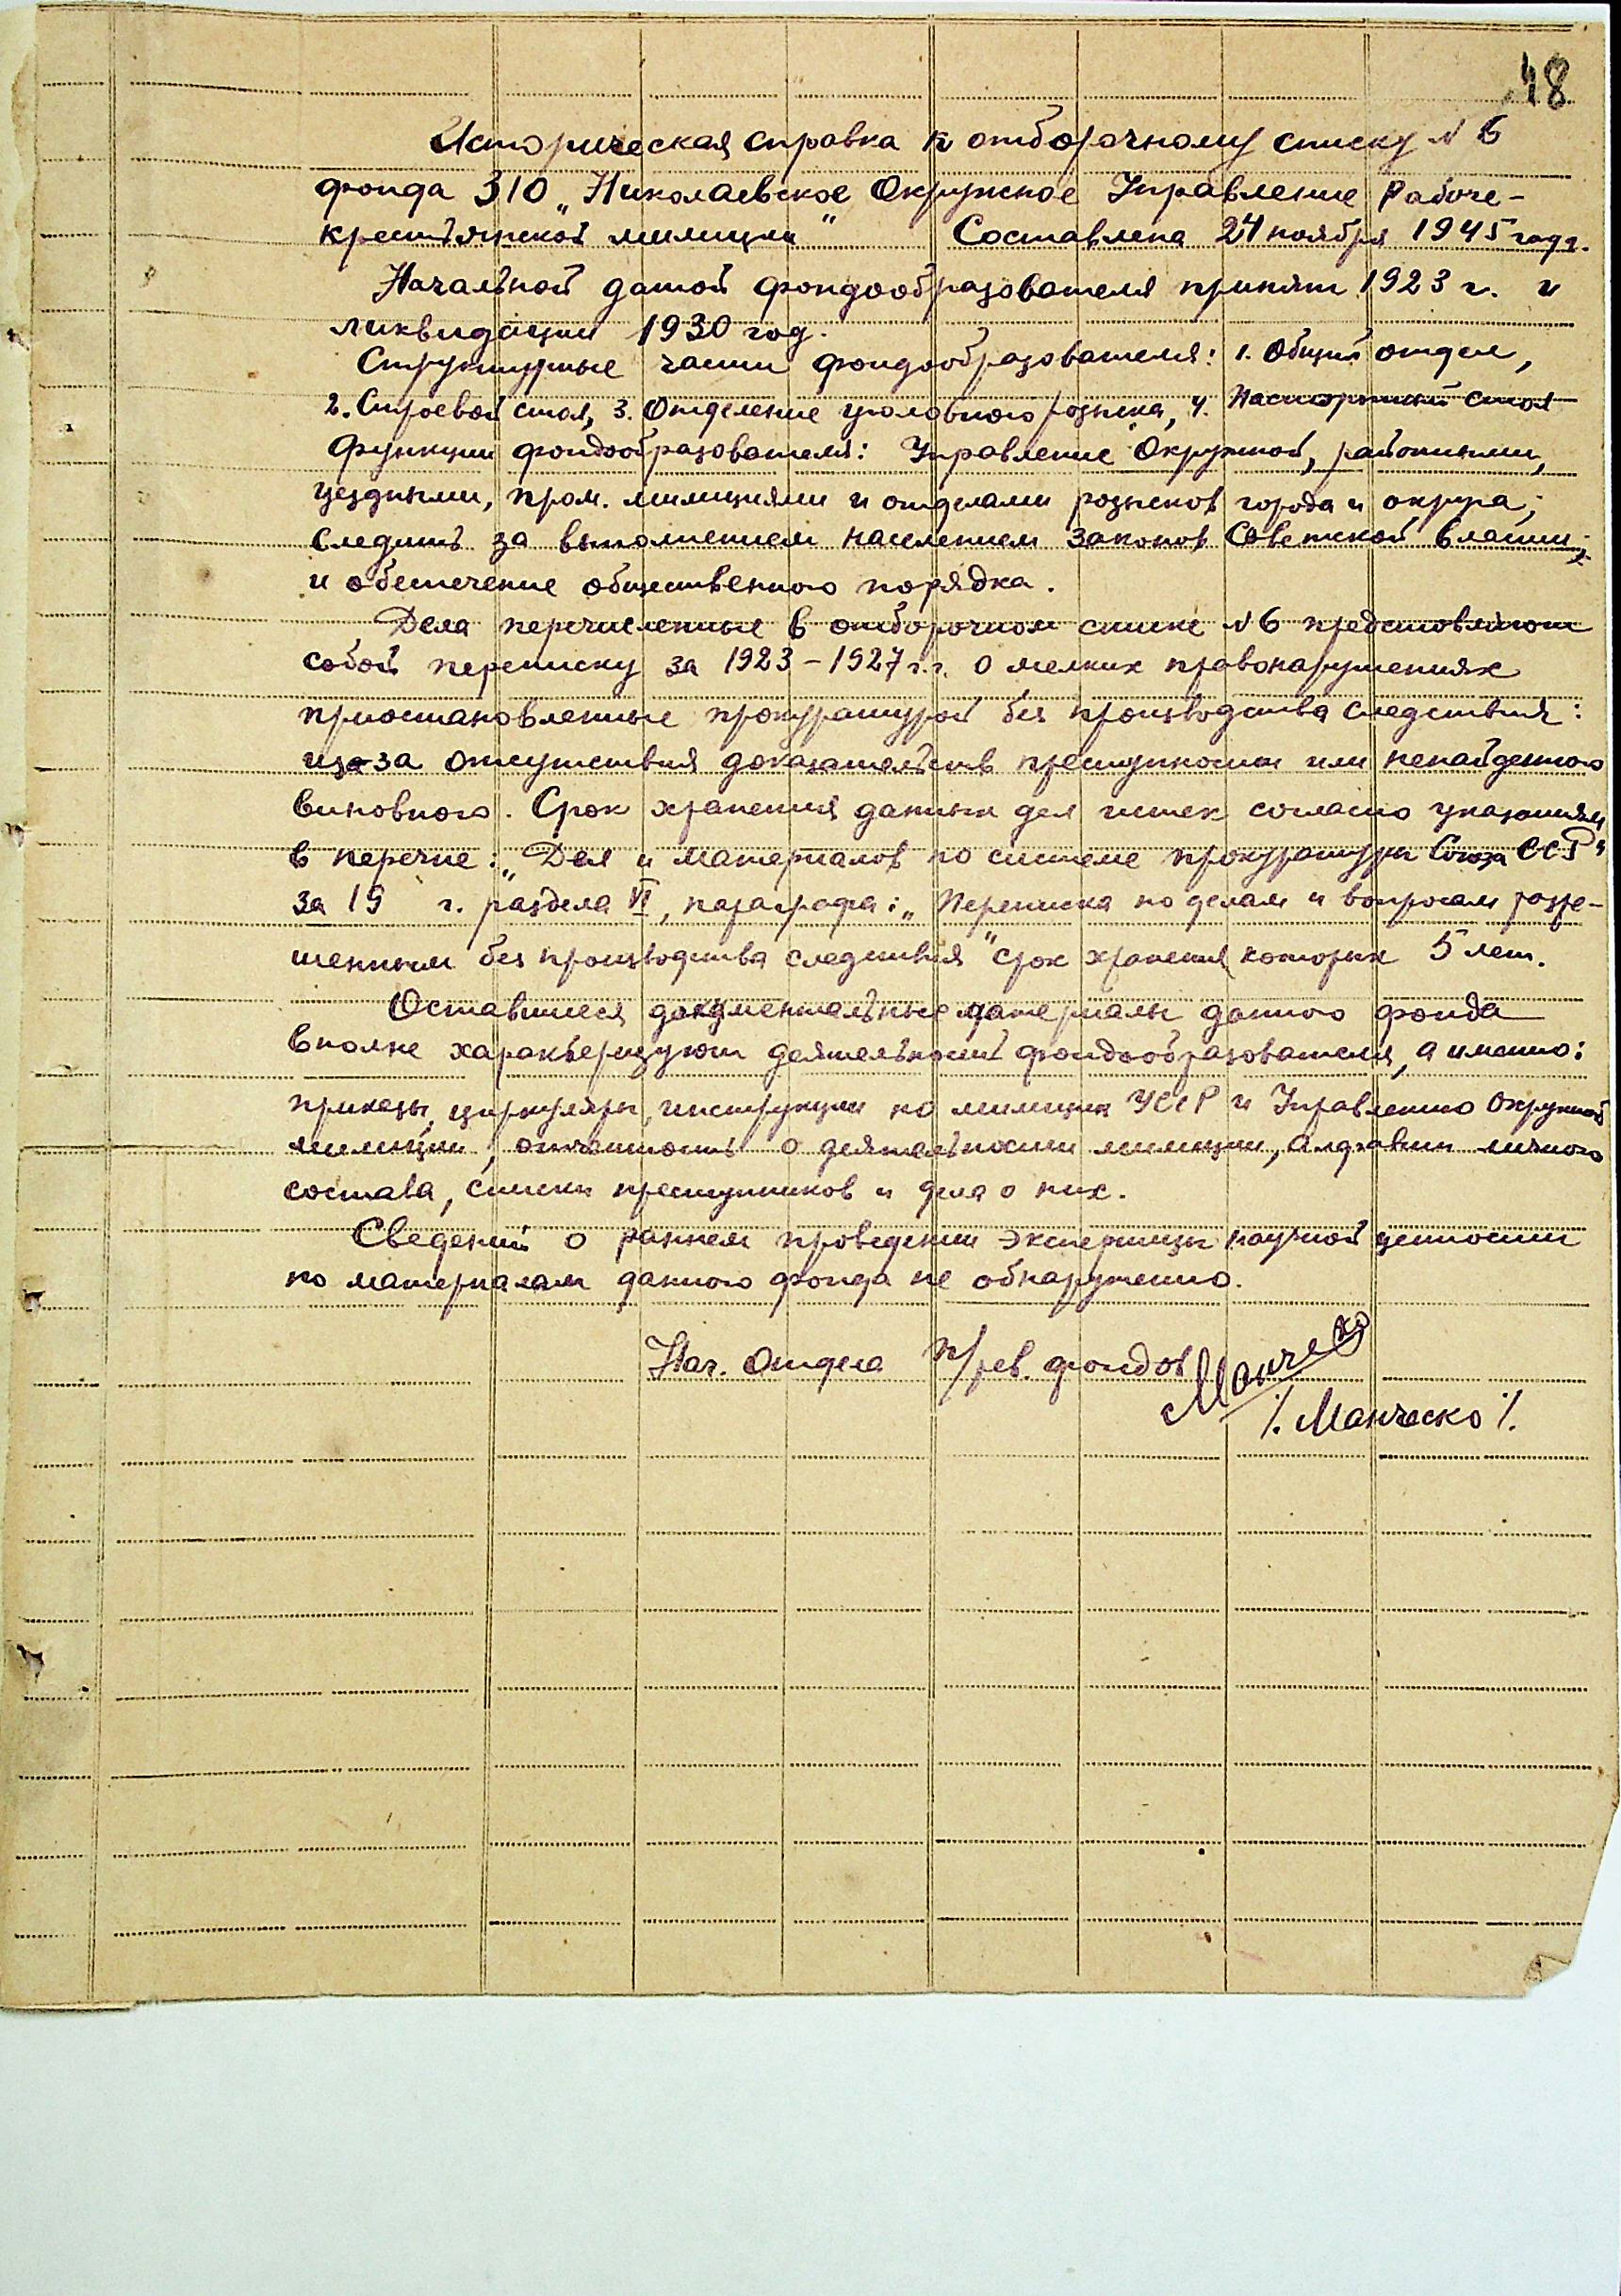 48
Историческая справка к отборочному списку № 6
фонда 310 „Николаевское Окружное Управление Рабоче-
крестьянской милиции" Составлена 24 ноября 1945 года.
Начальной датой фондообразователя принят 1923 г. и
ликвидации 1930 год.
Структурные части фондообразователя: 1. Общий отдел,
2. Строевой стол, 3. Отделение уголовного розыска, 4. Паспортный стол
Функции фондообразователя: Управление Окружной, районными,
уездными, пром. милициями и отделами розысков города и округа;
Следить за выполнением населением законов Советской власти;
и обеспечение общественного порядка.
Дела перечисленные в отборочном списке № 6 представляют
собой переписку за 1923-1927 г.г. о мелких правонарушениях
приостановленные прокуратурой без производства следствия:
из-за отсутствия доказательств преступности или ненайденного
виновного. Срок хранения данных дел истек согласно указаниям
в перечне: „Дел и материалов по системе прокуратуры Союза ССР"
за 19 г. раздела VI, параграфа: „Переписка по делам и вопросам разре-
шенным без производства следствия" срок хранения которых 5 лет.
Оставшиеся документальные материалы данного фонда
вполне характеризуют деятельность фондообразователя, а именно:
приказы, циркуляры, инструкции по милиции УССР и Управлению Окружной
милиции, отчетность о деятельности милиции, личного
состава, списки преступников и дела о них.
Сведений о раннем проведении экспертизы научной ценности
по материалам данного фонда не обнаруженно.
Нач. Отдела п/рев. фондов Манческо
/. Манческо /.